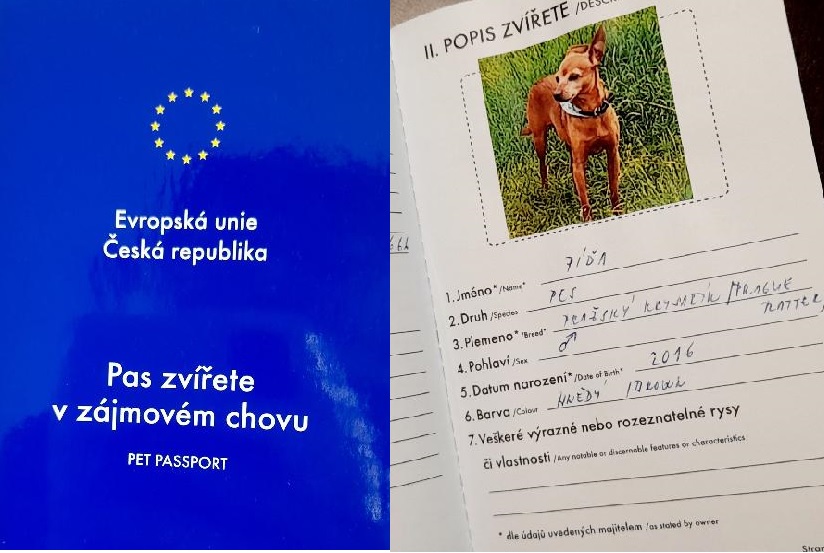 Evropská unie
Česká republika
Pas zvířete
v zájmovém chovu
PET PASSPORT
II. POPIS ZVÍŘETE /DESCR
1. Jméno* /Name*
2. Druh /Species PES
3. Plemeno* /Breed* PRAŽSKÝ KRYSAŘÍK / PRAGUE
RATTER
4. Pohlaví /Sex ♂
5. Datum narození* /Date of Birth* 2016
6. Barva /Colour HNĚDÝ / BROWN
7. Veškeré výrazné nebo rozeznatelné rysy
či vlastnosti /Any notable or discernable features or characteristics
* dle údajů uvedených majitelem /as stated by owner
Stran